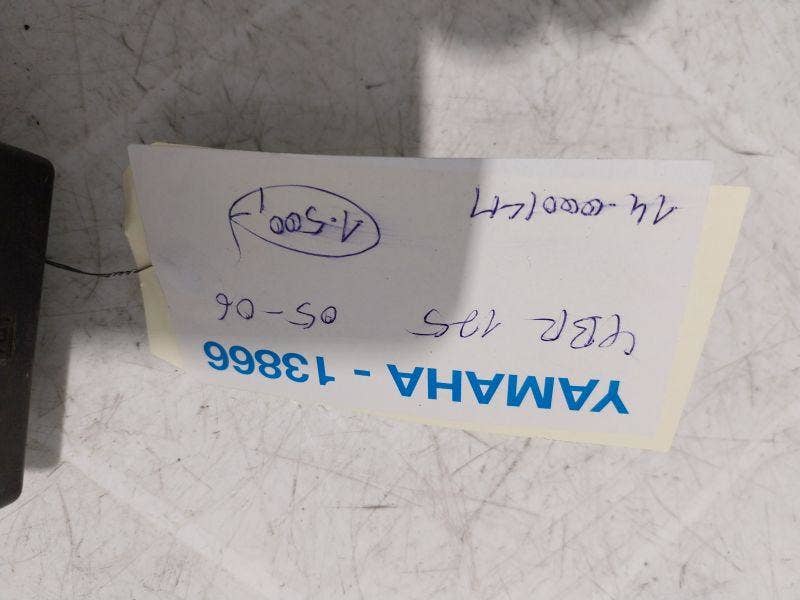 YAMAHA - 13866
YBR 125 05-06
14.000 KM 1.500,-